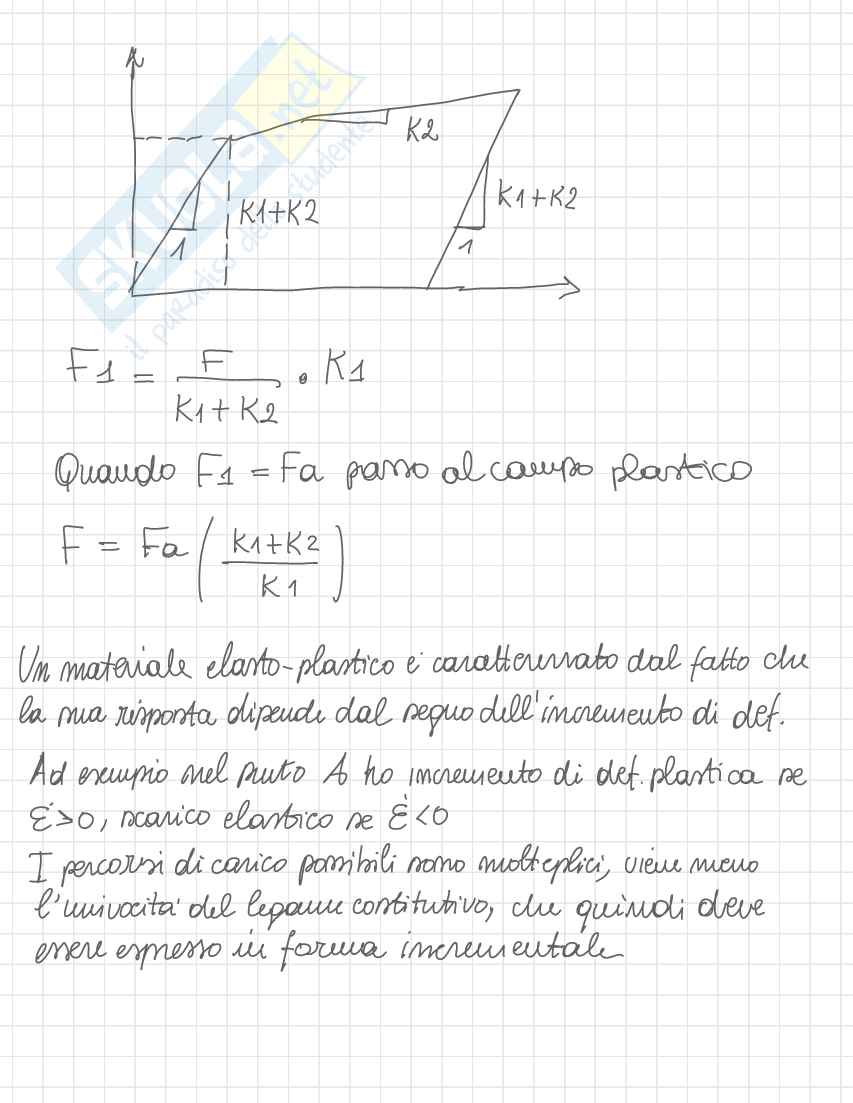 K2
K1+K2
K1+K2
1
1
SKUOLA.net
il paradiso dello studente
F1 = F / (K1+K2) • K1
Quando F1 = Fa passo al campo plastico
F = Fa ( (K1+K2) / K1 )
Un materiale elasto-plastico è caratterizzato dal fatto che
la sua risposta dipende dal segno dell'incremento di def.
Ad esempio nel punto A ho incremento di def. plastica se
ε̇>0, scarico elastico se ε̇<0
I percorsi di carico possibili sono molteplici, viene meno
l'univocità del legame costitutivo, che quindi deve
essere espresso in forma incrementale